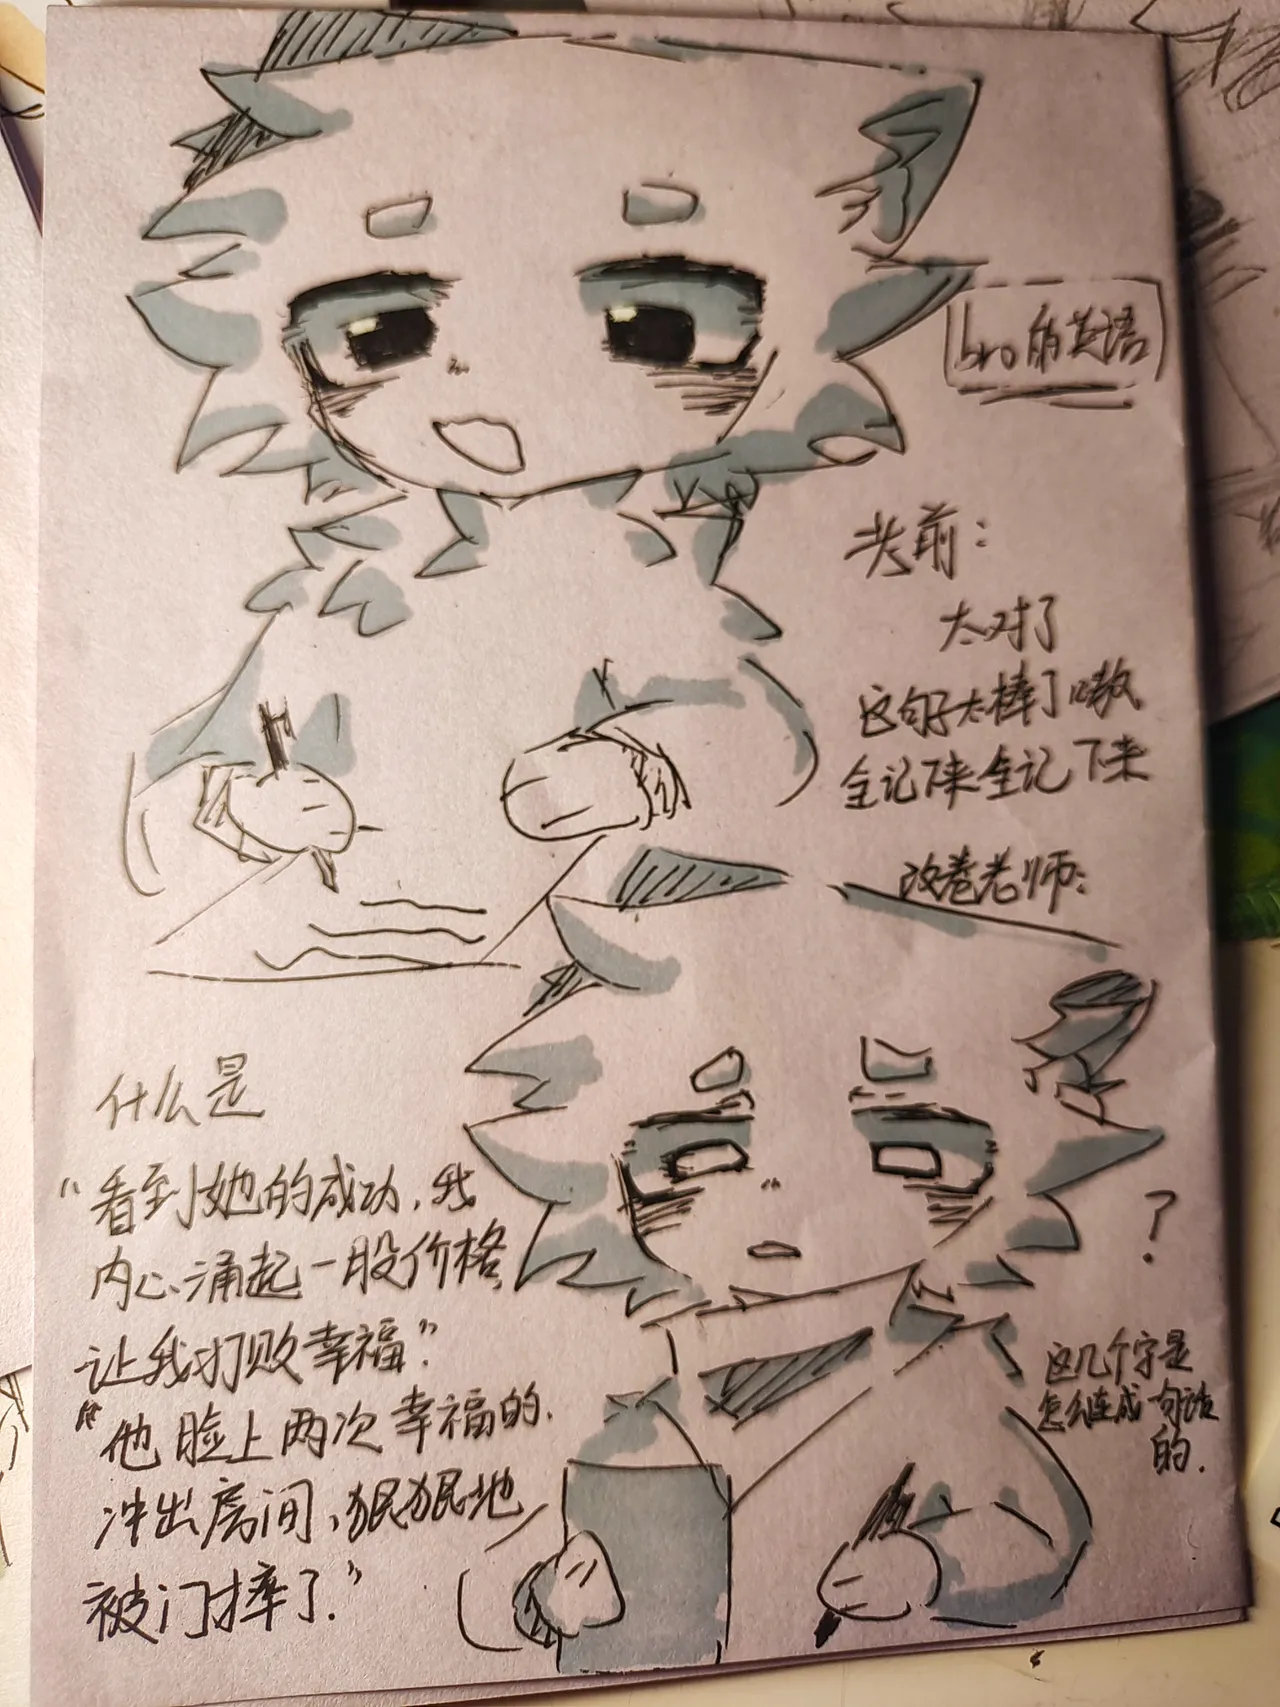 bro的英语
考前：
太对了
这句子太棒了嗷
全记下来全记下来
改卷老师：
什么是
“看到她的成功，我
内心涌起一股价格，
让我打败幸福”
“他脸上两次幸福的，
冲出房间，狠狠地
被门摔了.”
?
这几个字是
怎么连成句话
的.